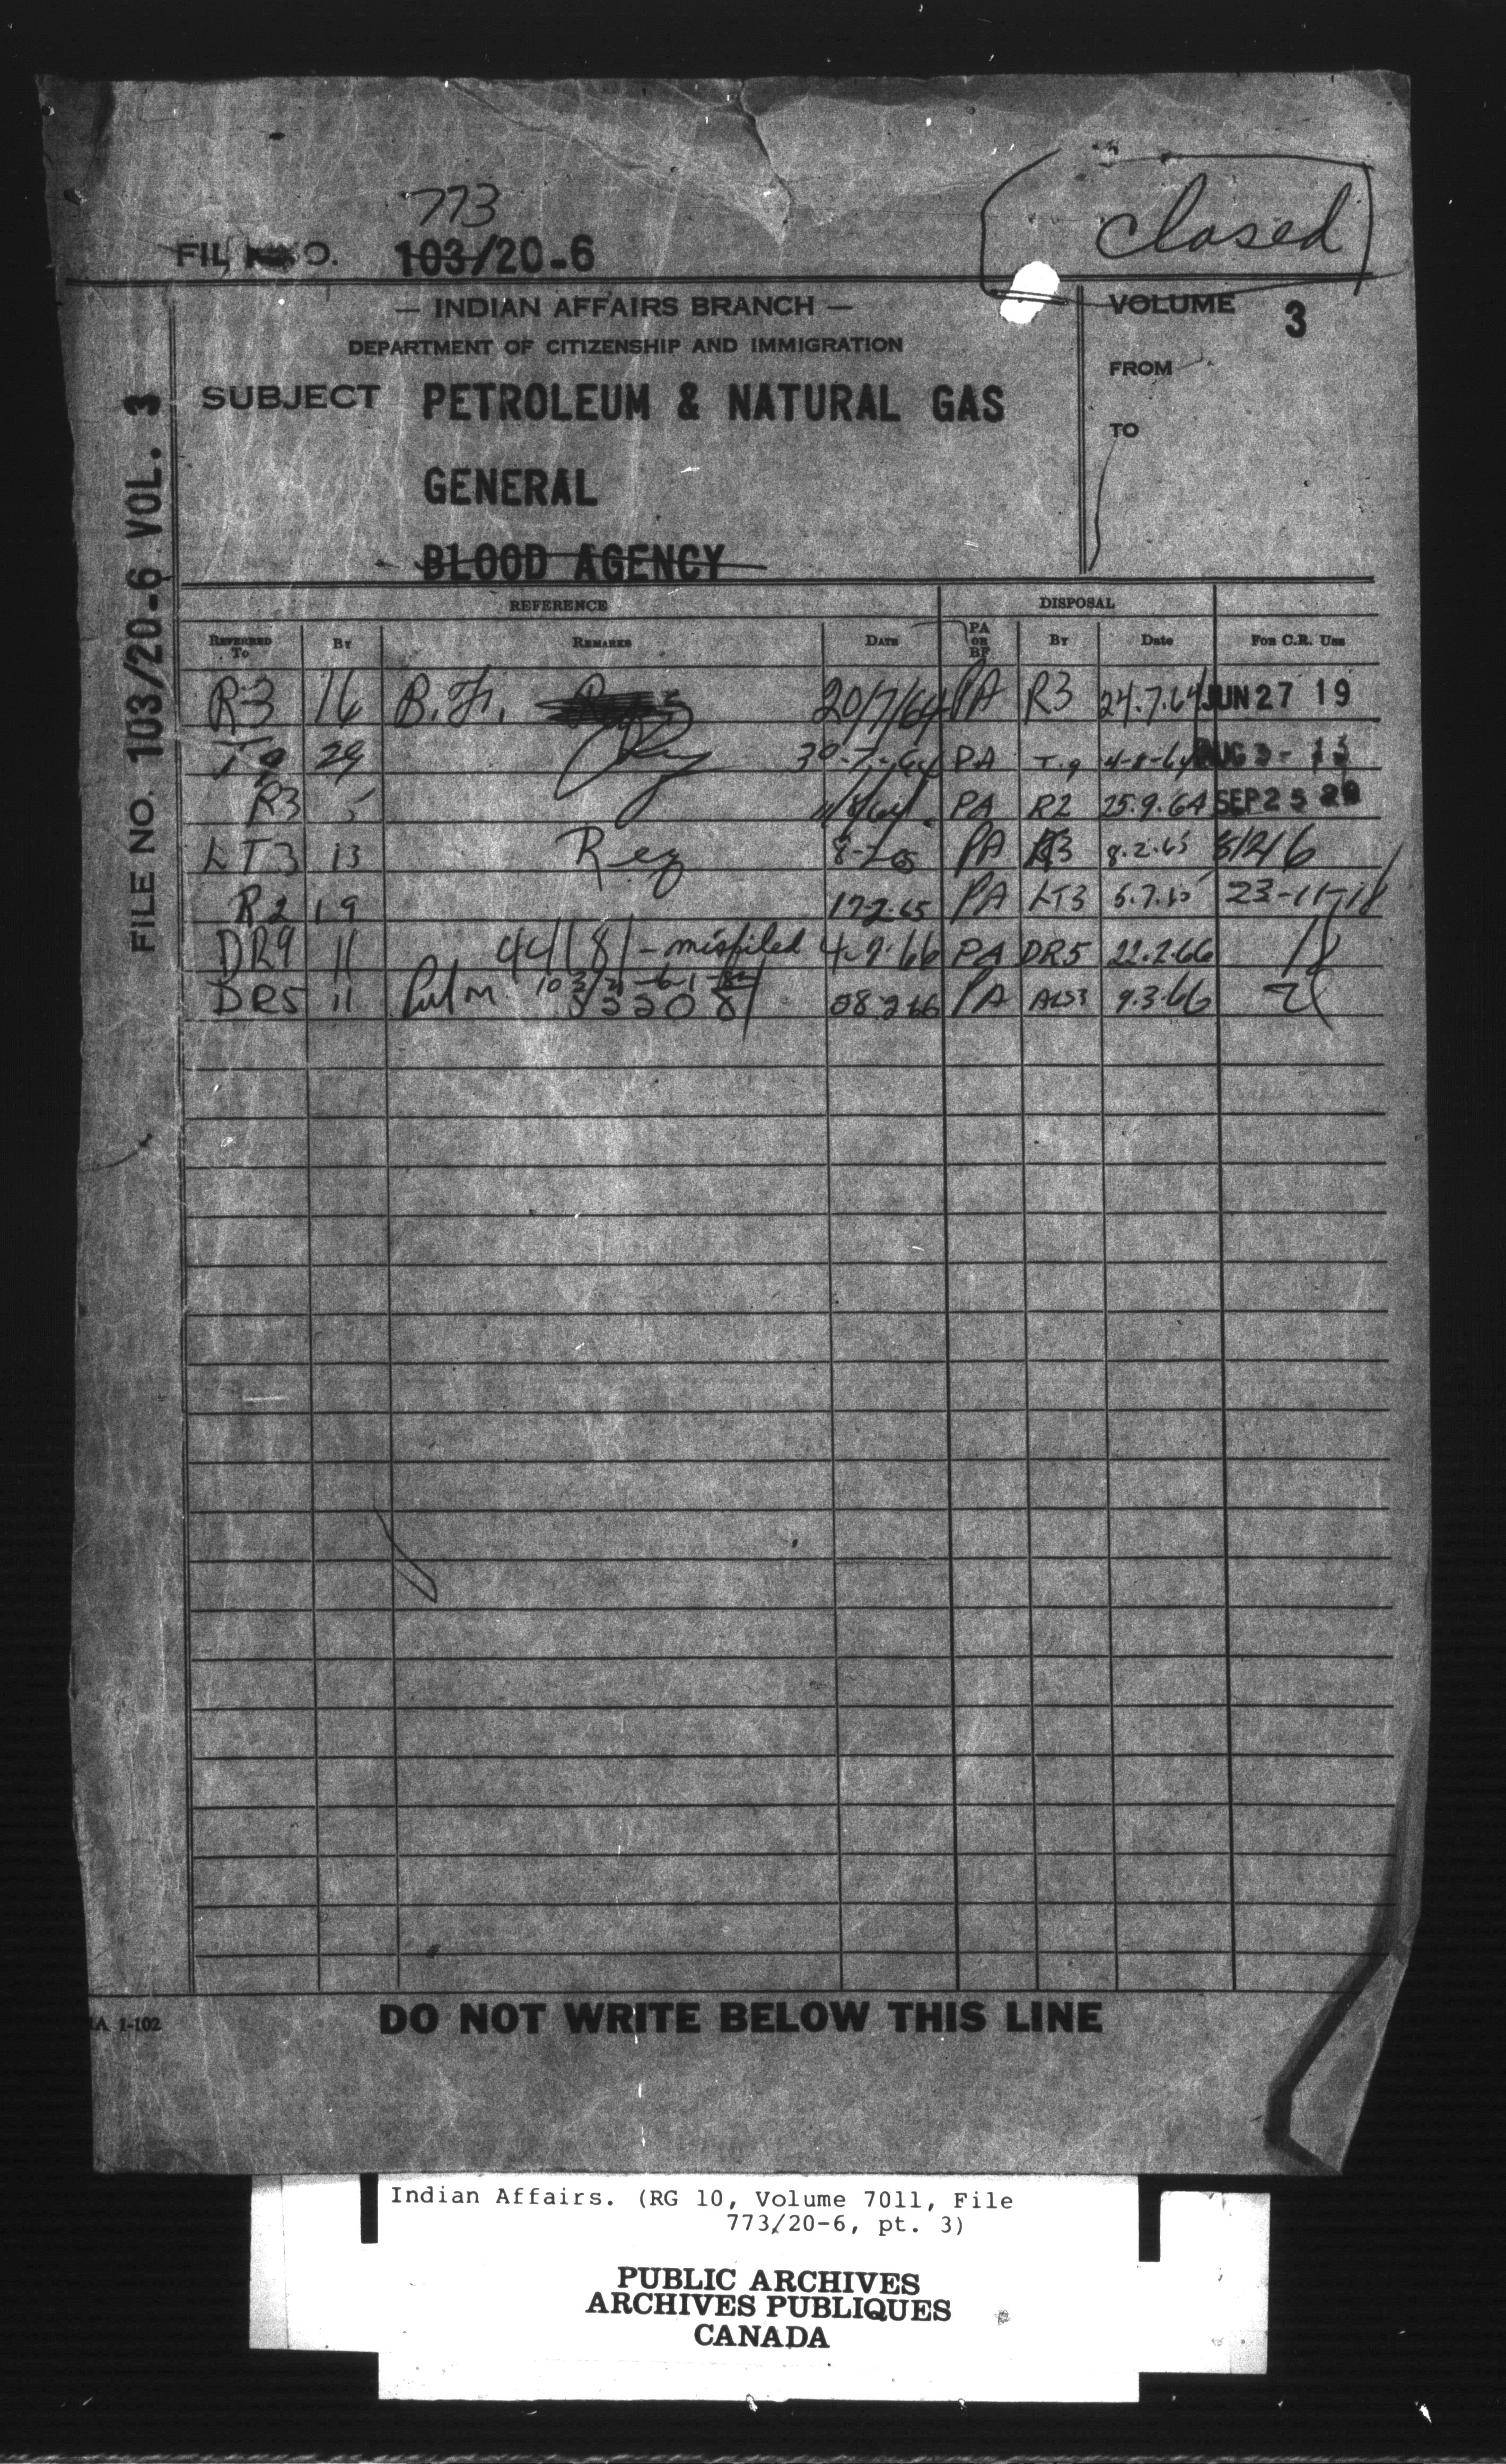 773
closed
FILE NO. 103/20-6
— INDIAN AFFAIRS BRANCH —
DEPARTMENT OF CITIZENSHIP AND IMMIGRATION
VOLUME 3
FROM
TO
SUBJECT PETROLEUM & NATURAL GAS
GENERAL
BLOOD AGENCY
FILE NO. 103/20-6 VOL. 3
REFERENCE DISPOSAL
REFERRED TO BY REMARKS DATE PA OR BF BY Date FOR C.R. USE
R3 16 B.F. 20/7/64 PA R3 24.7.64 JUN 27 19
T9 29 30-7-64 PA T.9 4-8-64 AUG 3 - 13
R3 5 11/8/64 PA R2 25.9.64 SEP 25
LT3 13 Reg PA 8.2.65
R2 19 17-2-65 PA LT3 23-11-18
DR9 11 44181 - misfiled PA DR5 22.2.66
DR5 11 PA 9.3.66
IA 1-102
DO NOT WRITE BELOW THIS LINE
Indian Affairs. (RG 10, Volume 7011, File
773/20-6, pt. 3)
PUBLIC ARCHIVES
ARCHIVES PUBLIQUES
CANADA